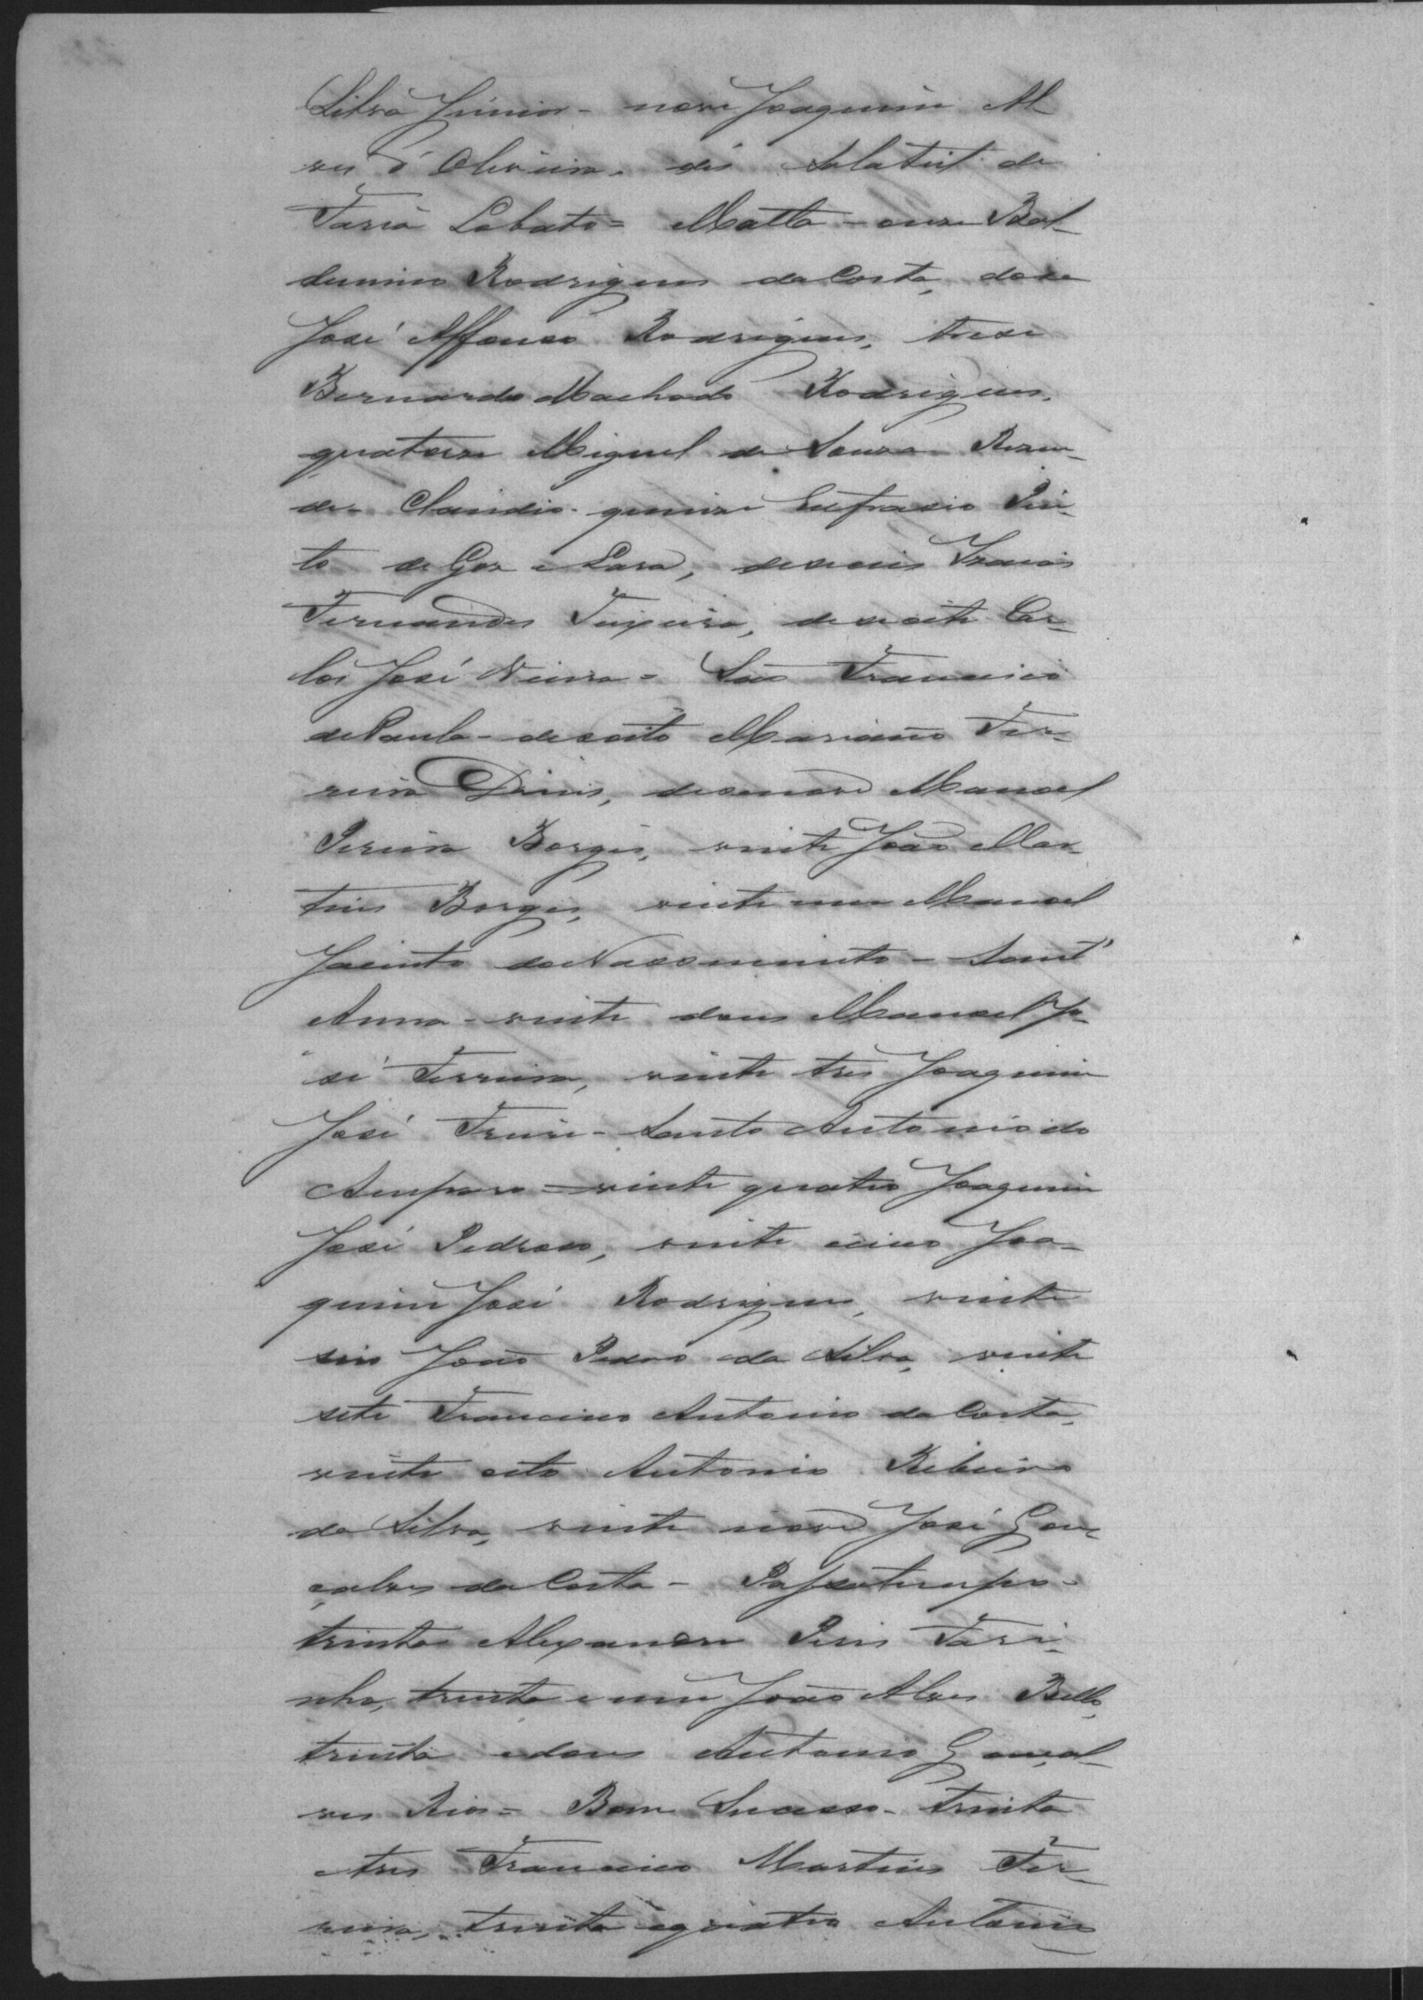 Silva Junior - nove Joaquim Al-
ves d'Oliveira, dés Salatiel de
Faria Lobato = Matta - onze Bal-
duino Rodrigues da Costa, doze
José Affonso Rodrigues, treze
Bernardo Machado Rodrigues,
quatorze Miguel de Souza Rezen-
de Claudio - quinze Eufrasio Pin-
to de Goz e Lara, deseseis
Fernandes Teixeira, desesete Car-
los José Vieira = São Francisco
de Paula - desoito Mariano Fer-
reira Dinis, desenove Manoel
Pereira Borges, vinte João Mar-
tins Borges, vinte um Manoel
Jacinto do Nascimento - Sant'
Anna - vinte dous Manoel Jo-
sé Ferreira, vinte tres Joaquim
José Freire - Santo Antonio do
Amparo = vinte quatro Joaquim
José Pedroso, vinte cinco Joa-
quim José Rodrigues, vinte
seis João Pedro da Silva, vinte
sete Francisco Antonio da Costa,
vinte oito Antonio Ribeiro
da Silva, vinte nove José Gon-
çalves da Costa - Passatempo -
trinta Alexandre Peres Fari-
nha, trinta e um João Alves Bello,
trinta e dous Antonio Gonçal-
ves Rios = Bom Sucesso - trinta
e tres Francisco Martins Fer-
reira, trinta e quatro Antonio